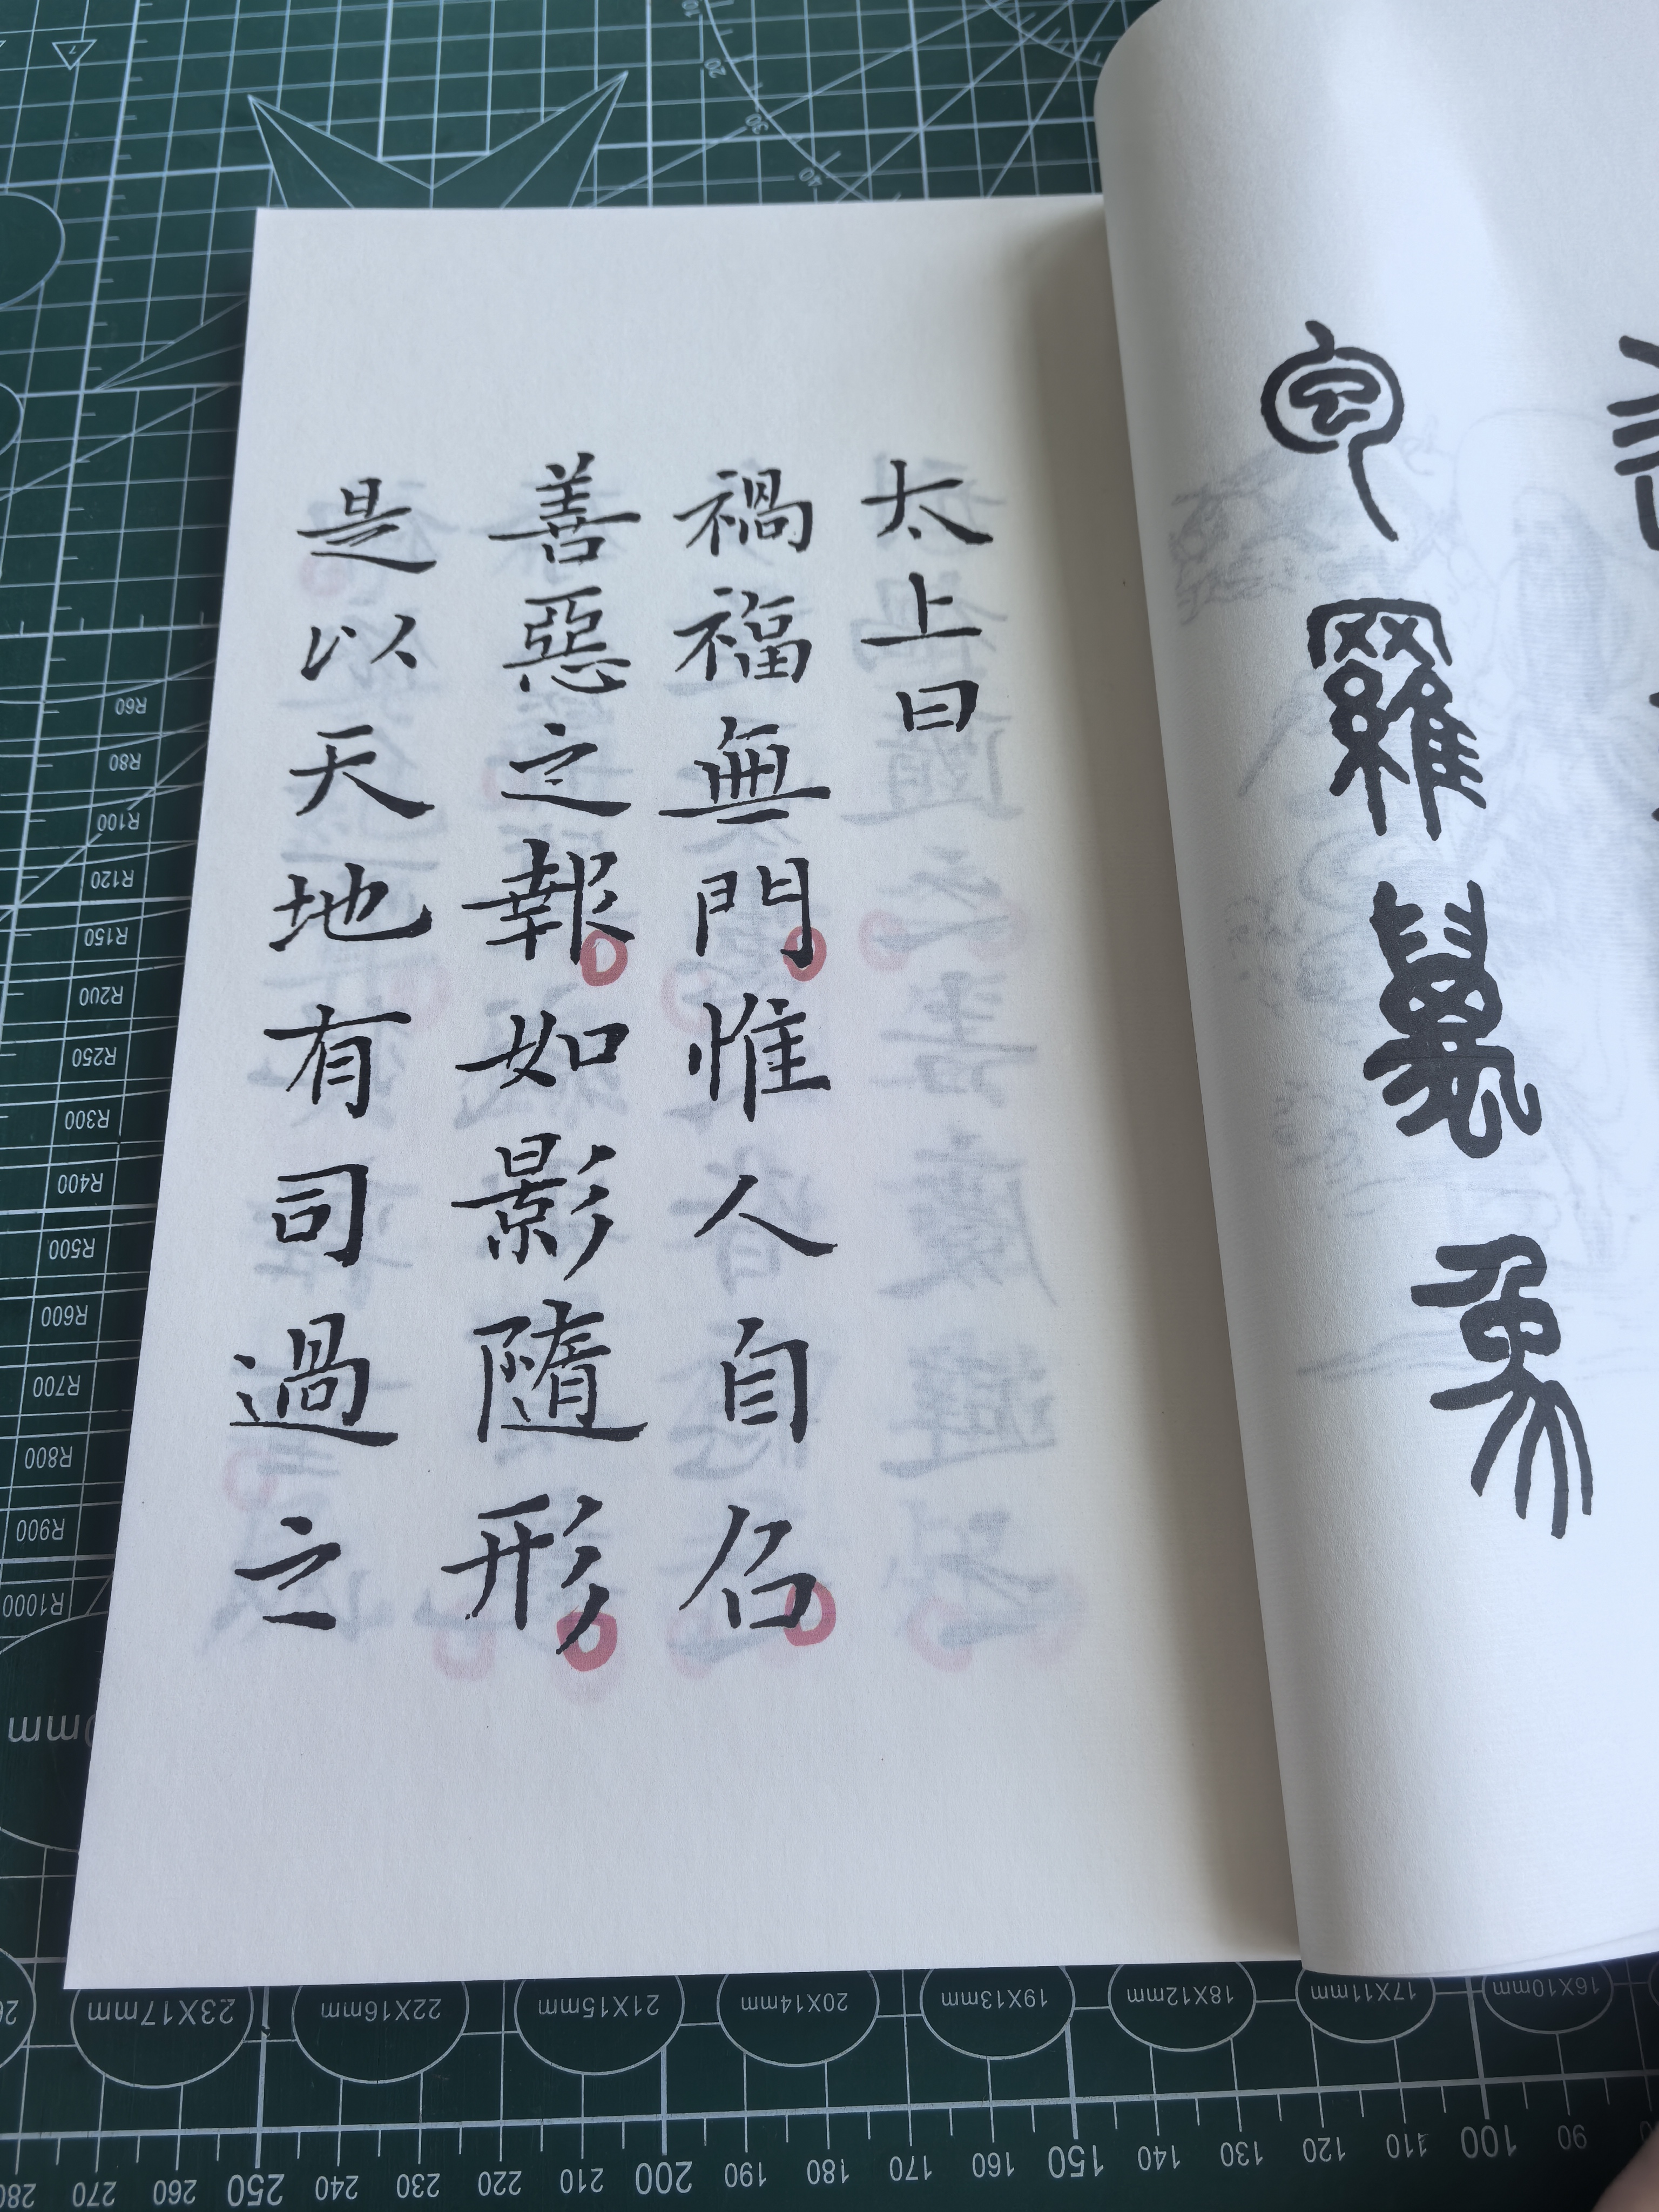 包羅萬象
太上曰
禍福無門惟人自召
善惡之報如影隨形
是以天地有司過之
R60
R80
R100
R120
R150
R200
R250
R300
R400
R500
R600
R700
R800
R900
R1000
23X17mm
22X16mm
21X15mm
20X14mm
19X13mm
18X12mm
17X11mm
16X10mm
280 270 260 250 240 230 220 210 200 190 180 170 160 150 140 130 120 110 100 90